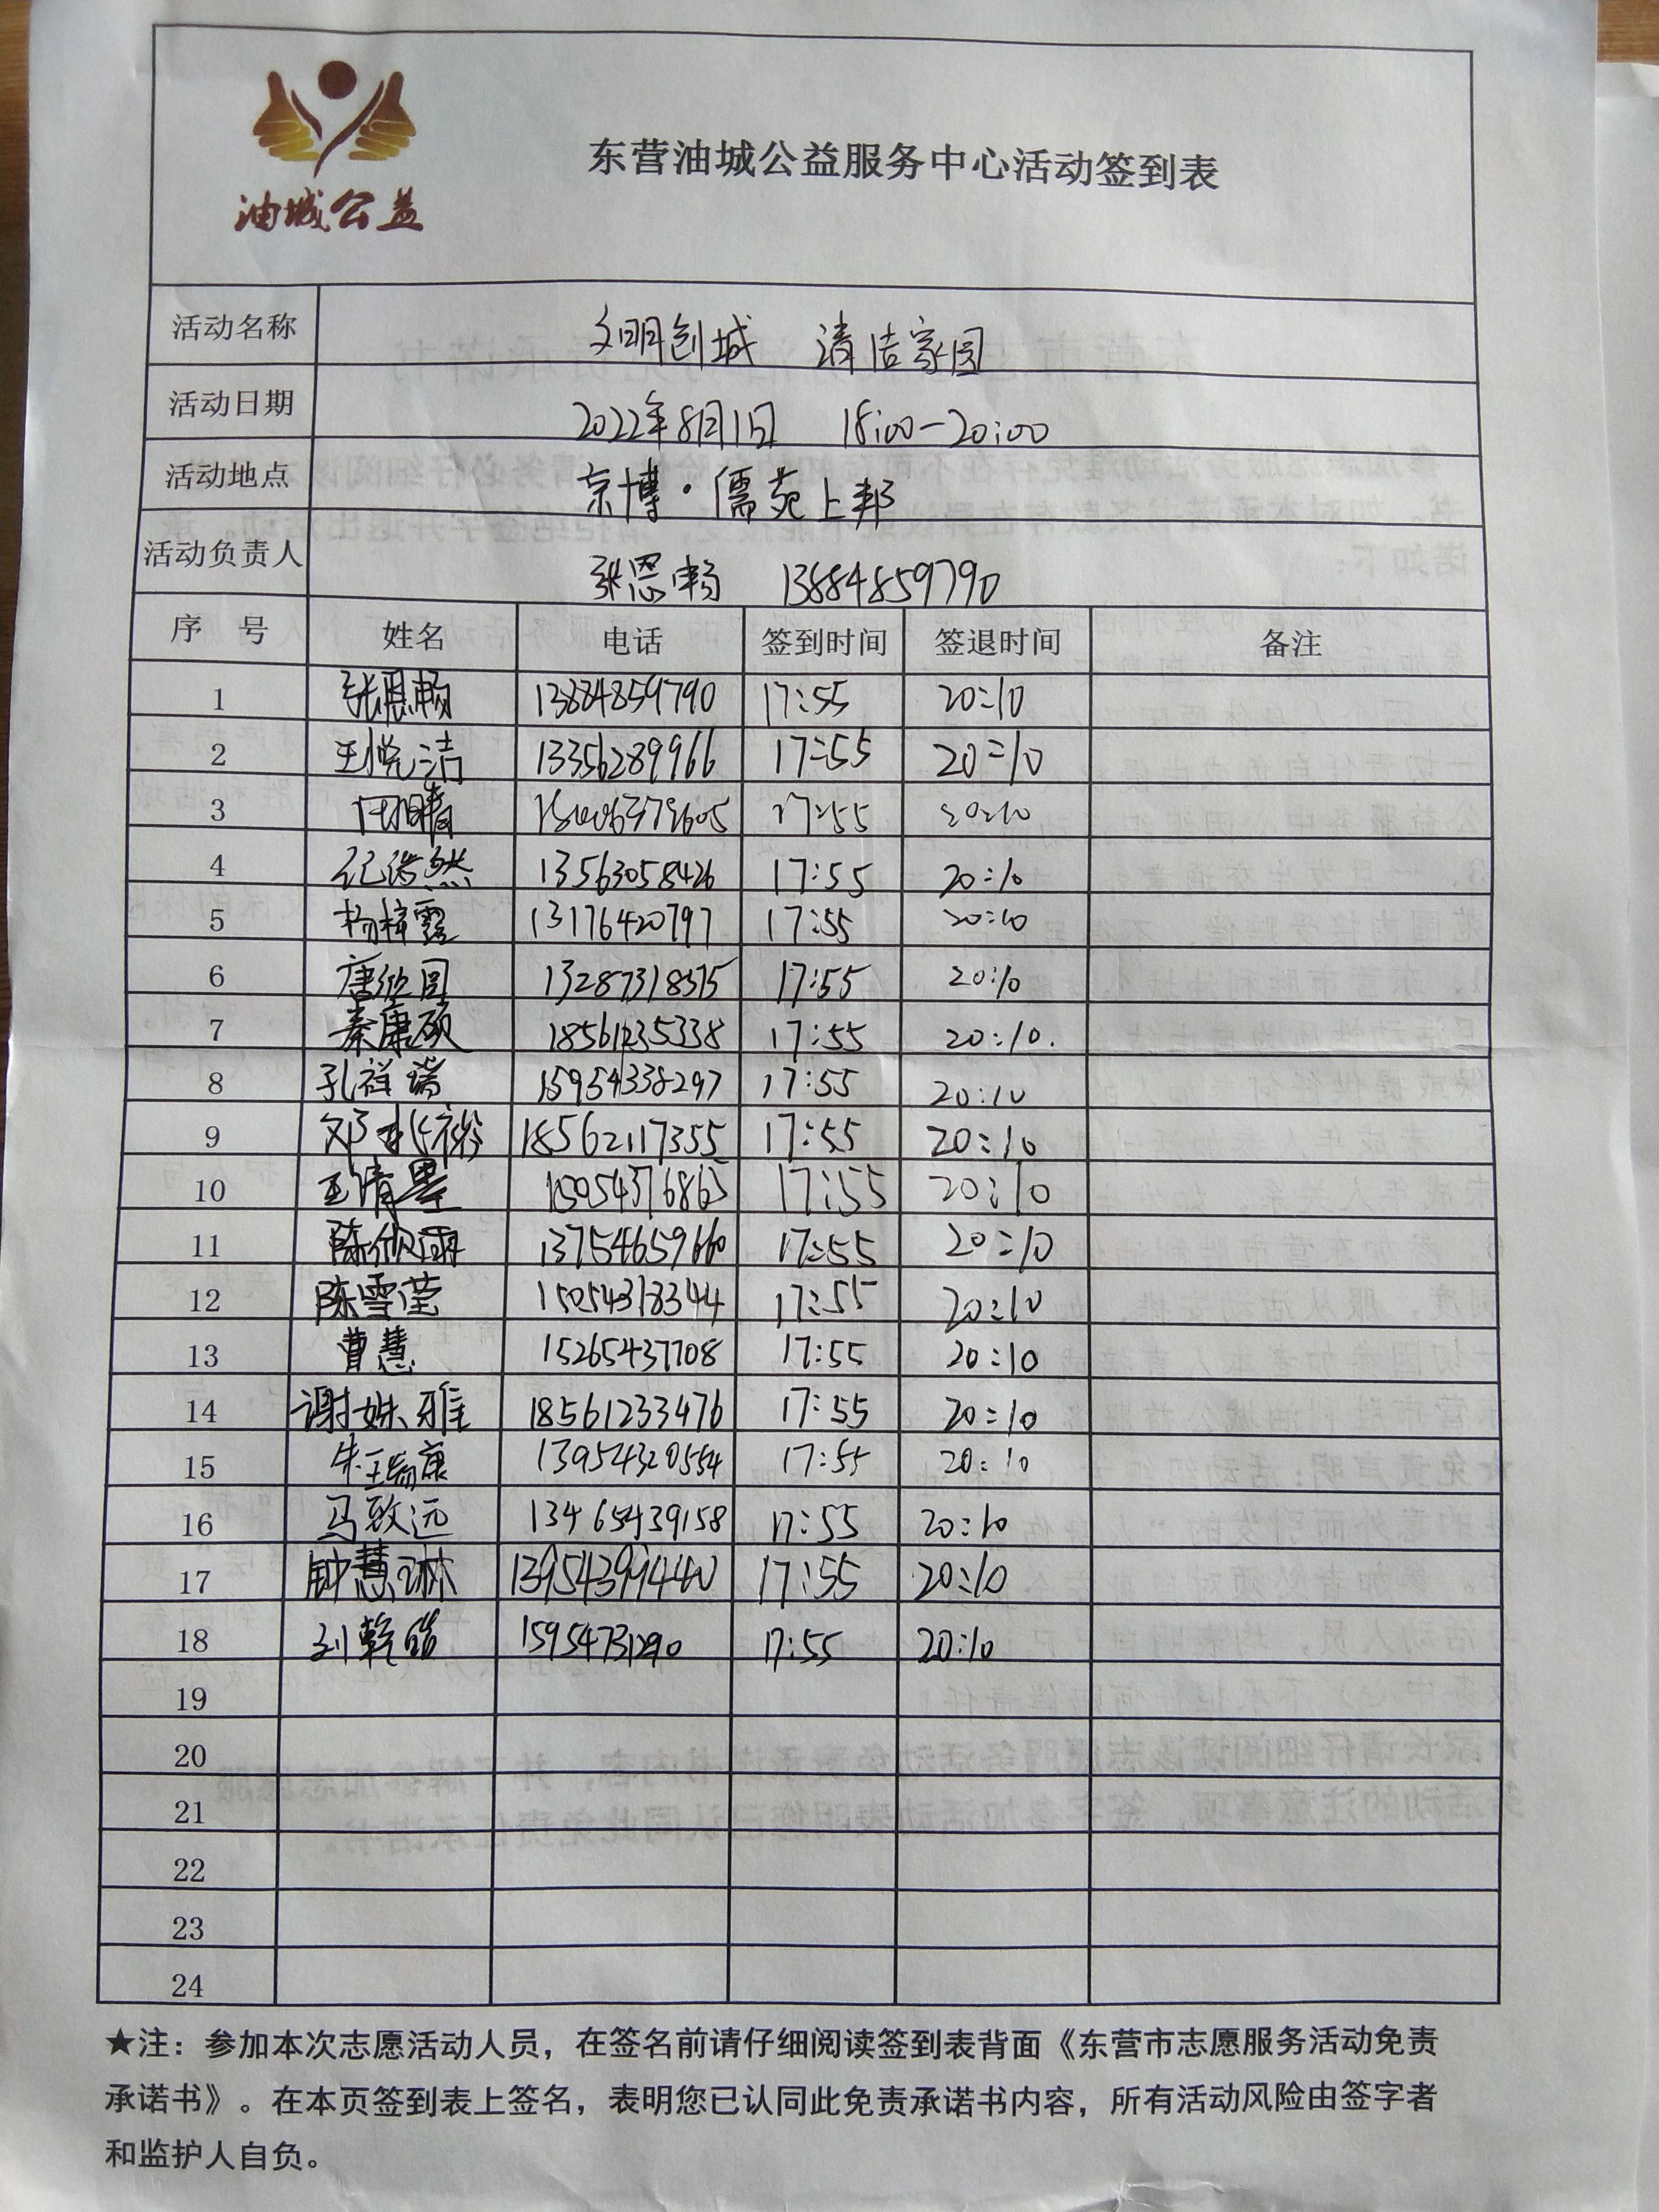 油城公益
东营油城公益服务中心活动签到表
活动名称 文明创城 清洁家园
活动日期 2022年8月1日 18:00-20:00
活动地点 京博·儒苑上邦
活动负责人 张恩畅 13884859790
序 号 姓名 电话 签到时间 签退时间 备注
1 13884859790 17:55 20:10
2 王悦洁 13356289966 17:55 20:10
3 17:55 20:10
4 纪浩然 13563058426 17:55 20:10
5 杨梓露 13176420797 17:55 20:10
6 13287318575 17:55 20:10
7 秦康硕 18561235338 17:55 20:10.
8 孔祥瑞 15954338297 17:55 20:10
9 18562117355 17:55 20:10
10 王清墨 15054376865 17:55 20:10
11 陈欣雨 13754659660 17:55 20:10
12 陈雪莹 15054318344 17:55 20:10
13 曹慧 15265437708 17:55 20:10
14 谢姝雅 18561233476 17:55 20:10
15 朱王瑞康 13954320554 17:55 20:10
16 马致远 13465439158 17:55 20:10
17 钟慧琳 17:55 20:10
18 15954731290 17:55 20:10
19
20
21
22
23
24
★注：参加本次志愿活动人员，在签名前请仔细阅读签到表背面《东营市志愿服务活动免责
承诺书》。在本页签到表上签名，表明您已认同此免责承诺书内容，所有活动风险由签字者
和监护人自负。